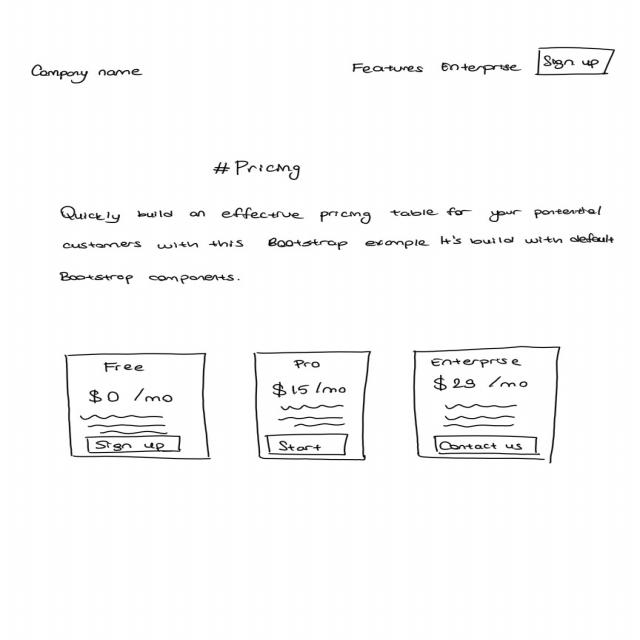 Company name
Features Enterprise Sign up
#Pricing
Quickly build an effective pricing table for your portential
customers with this Bootstrap example It's build with default
Bootstrap components.
Free
$0 /mo
Sign up
Pro
$15/mo
Start
Enterprise
$29 /mo
Contact us